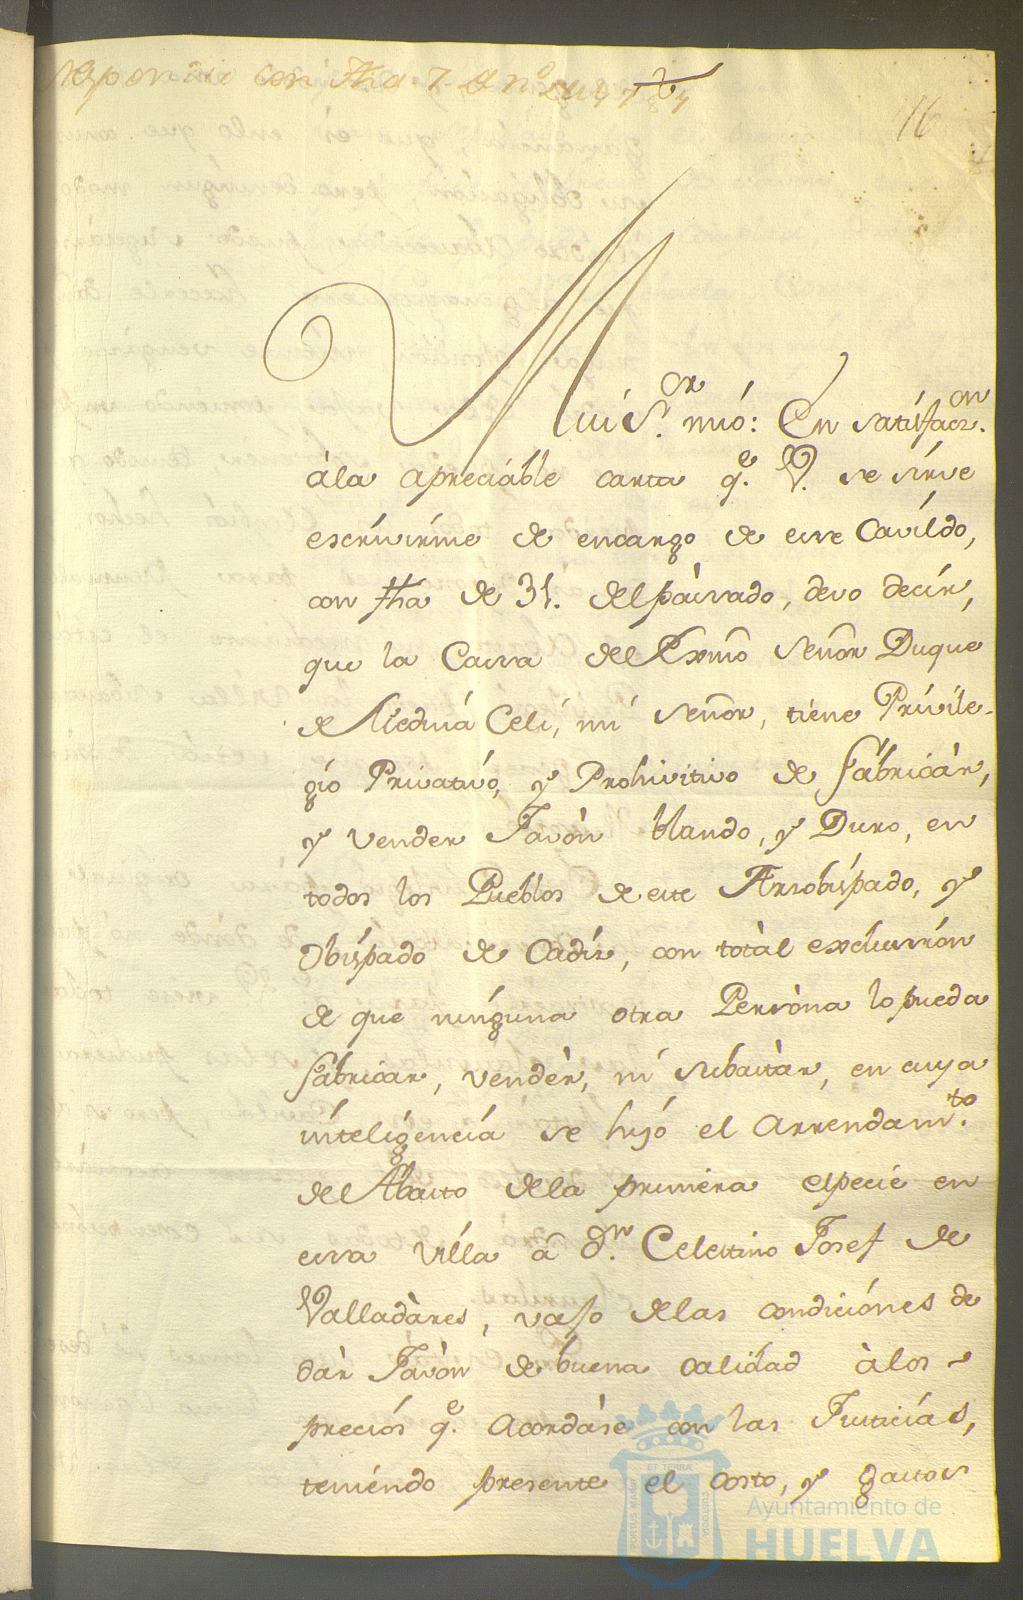 respondida con fha 7 de
16
Mui S.or mio: En satisfacz.on
àla apreciáble carta q.e V. se sirve
escrivírme de encargo de esse Cavíldo,
con fha de 31. del pàssado, devo decír,
que la Cassa del Exmõ Señor Duque
de Medina Celi, mi Señor, tiene Privile-
gio Privatívo, y Prohivitivo de fabricàr,
y vender Javòn blando, y Duro, en
todos los Pueblos de este Arzobispado, y
Obispado de Cadiz, con totàl exclussion
de que nínguna otra Persòna lo pueda
fabricar, vendèr, ni subastàr, en cuya
inteligencia se hizó el Arrendam.to
del Abasto dela primèra especie en
essa Villa à d.n Celestino Josef de
Valladàres, vajo delas condiciónes de
dàr Javòn de buena calidad àlos
preciós q.e acordáse con las Justicias,
teniéndo presente el costo, y gastos
PORTUS MARIS
ET TERRAE
CUSTODIA
Ayuntamiento de
HUELVA